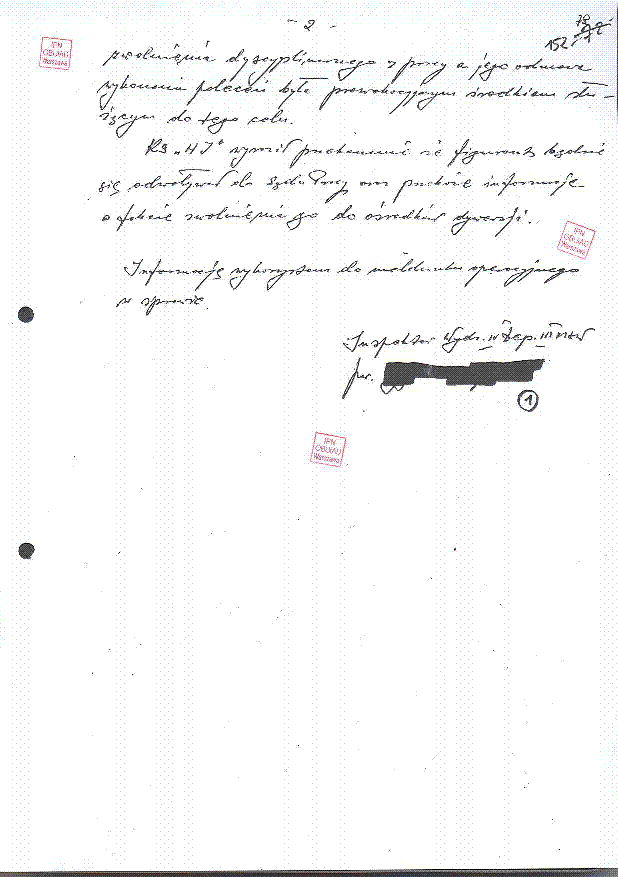 - 2 -
152
IPN
OBUiAD
Warszawa
zwolnienia dyscyplinarnego z pracy a jego odmowa
wykonania poleceń była prowokacyjnym środkiem słu-
żącym do tego celu.
KS "HJ" wyraził przekonanie że figurant będzie
się odwoływał do Sądu Pracy oraz przekaże informację
o fakcie zwolnienia go do ośrodków dywersji.
IPN
OBUiAD
Warszawa
Informację wykorzystam do meldunku operacyjnego
w sprawie.
Inspektor Wydz. IV Dep. III MSW
por.
1
IPN
OBUiAD
Warszawa